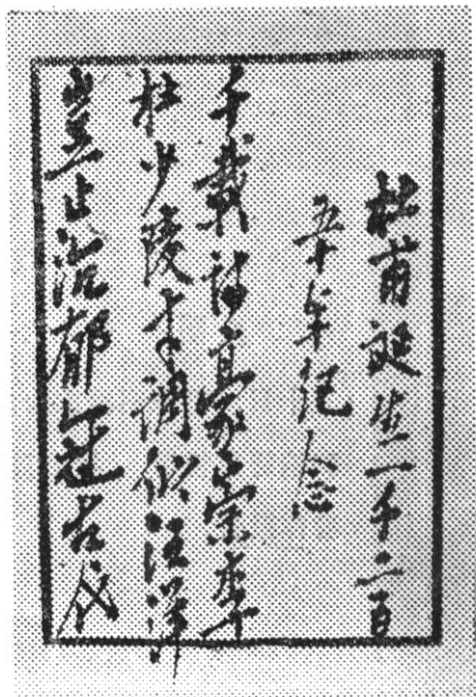 杜甫诞生一千二百
五十年纪念
千载诗豪崇李
杜少陵才调似汪洋
岂止沉郁冠代